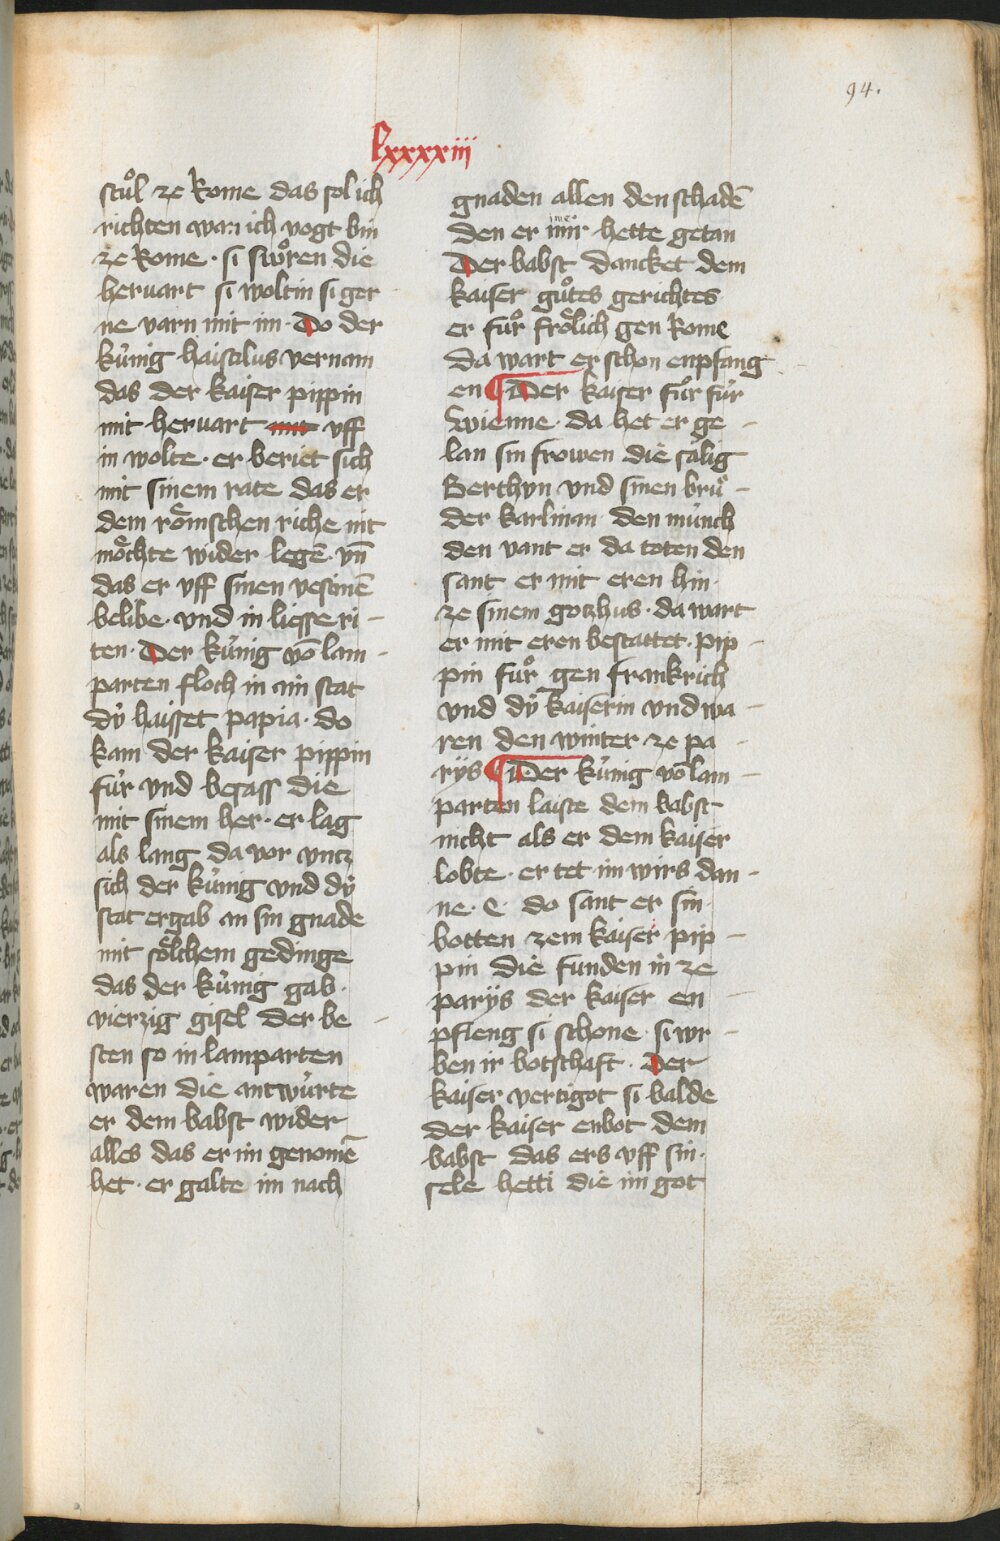 94.
lxxxxiii
stuͦl ze Rome das sol ich
richten wan ich vogt bin
ze Rome · si swuͦren die
heruart si woltin si ger
ne varn mit im · Do der
kúnig haistulus vernam
das der kaiser pippin
mit heruart mit vff
in wolte · er beriet sich
mit sinem rate das er
dem roͤmschen riche nit
moͤchte wider legē vn̄
das er vff sinen vestinē
belibe · vnd in liesse ri-
ten · Der kúnig vō lam-
parten floch in ain stat
dÿ haisset papia · do
kam der kaiser pippin
fúr vnd besass die
mit sinem her · er lag
als lang da vor vntz
sich der kúnig vnd dÿ
stat ergab an sin gnade
mit soͤlichem gedinge
das der kúnig gab ·
vierzig gisel der be-
sten so in lamparten
waren die antwúrte
er dem babst wider
alles das er im genomē
het · er galte im nach
gnaden allen den schadē
den er imer hette getan
Der babst dancket dem
kaiser guͦtes gerichtes
er fuͦr froͤlich gen Rome
da wart er schon enpfang
en ¶ Der kaiser fuͦr fúr
Wienne · da het er ge-
lan sin frowen die saͤlig
Berthyn vnd sinen bruͦ-
der karlman den múnch
den vant er da toten den
sant er mit eren hin ·
ze sinem gotzhus · da wart
er mit eren bestattet · pip-
pin fuͦr gen frankrich
vnd dÿ kaiserin vnd wa-
ren den winter ze pa-
rÿs ¶ Der kúnig vō lam-
parten laiste dem babst
nicht als er dem kaiser
lobte · er tet im wirs dan-
ne · e · do sant er sin
botten zem kaiser pip-
pin die funden in ze
parÿs der kaiser en-
pfieng si schone · si wr-
ben ir botschaft · Der
kaiser vertigot si balde
der kaiser enbot dem
babst das ers vff sin ·
sele hetti die im got